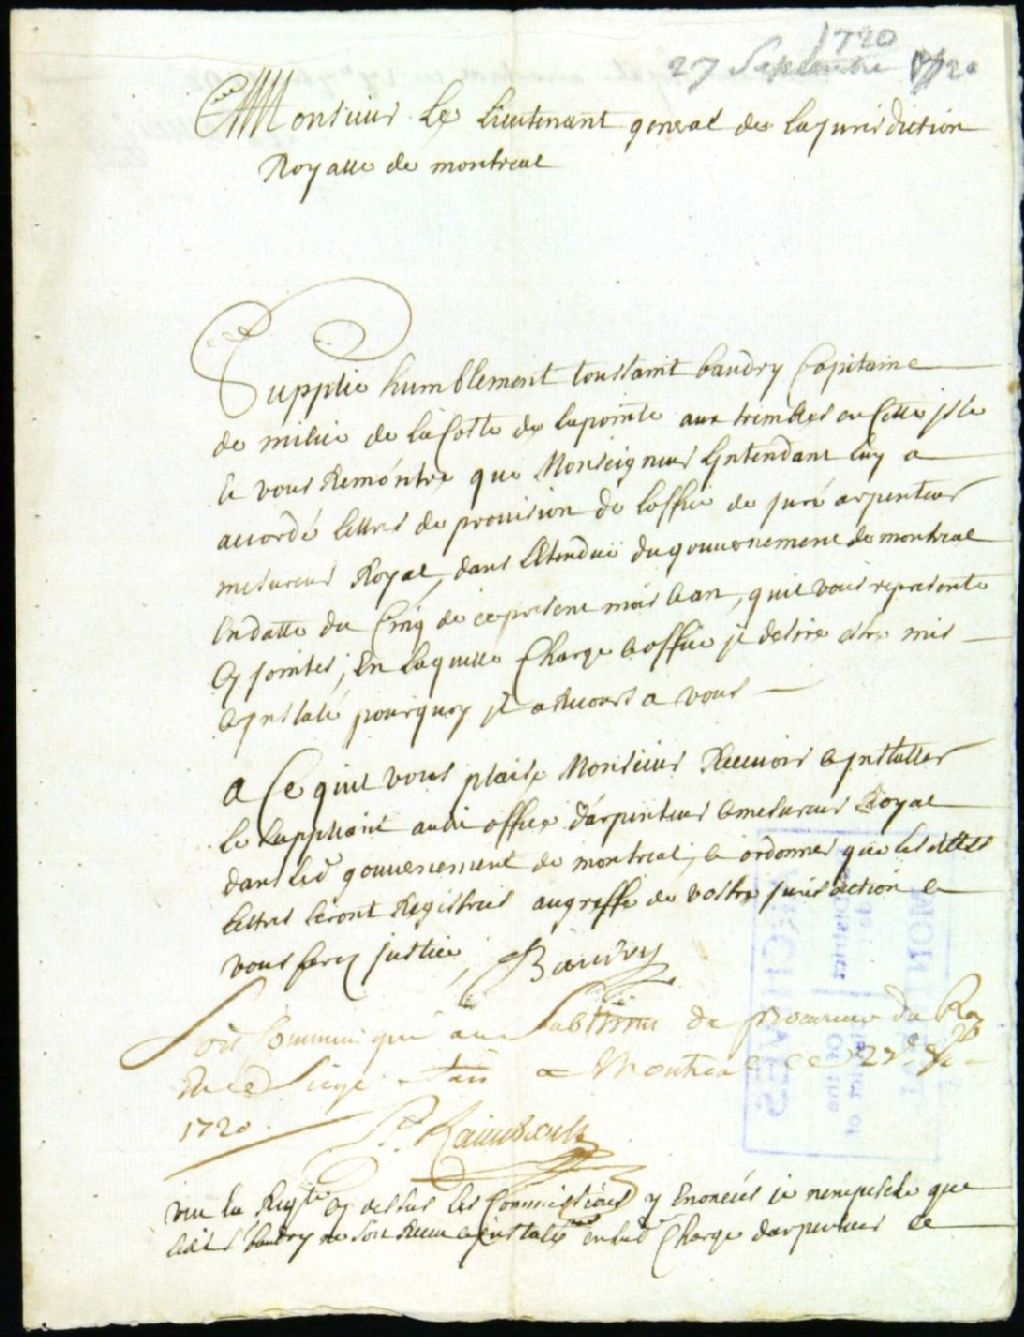 1720
27 Septembre 1720
A Monsieur Le Lieutenant general de La Jurisdiction
Royalle de montreal
Supplie humblement toussaint baudry Capitaine
de milice de la Coste de lapointe aux trembles en Cette isle
Et vous Remontre que Monseigneur Lyntendant luy a
accordé lettres de provision de Loffice de juré arpenteur
mesureur Royal, dans Létenduë du gouvernement de montreal
En datte du Cinq de ce present mois & an, quil vous represente
Cy jointes; En Laquelle Charge & office il desire estre mis
& ynstalé pourquoy il a Recours a vous
A Ce quil vous plaise Monsieur Recevoir & ynstaller
le Suppliant audit office d'arpenteur & mesureur Royal
dans led gouvernement de montreal, & ordonner que lesdittes
lettres seront Registrées au greffe de vostre jurisdiction &
vous ferez justice, Baudry
Soit Communiqué au Substitut du procureur du Roy
En ce Siege fait a Montreal ce 27e 7bre
1720
P. Raimbault
veu la Reqte cy dessus les Commissions y Enoncées je nempesche que
ledit S baudry ne soit Receu & ynstalé en lad Charge darpenteur &
MONTREAL
du District
of the
District of
ARCHIVES